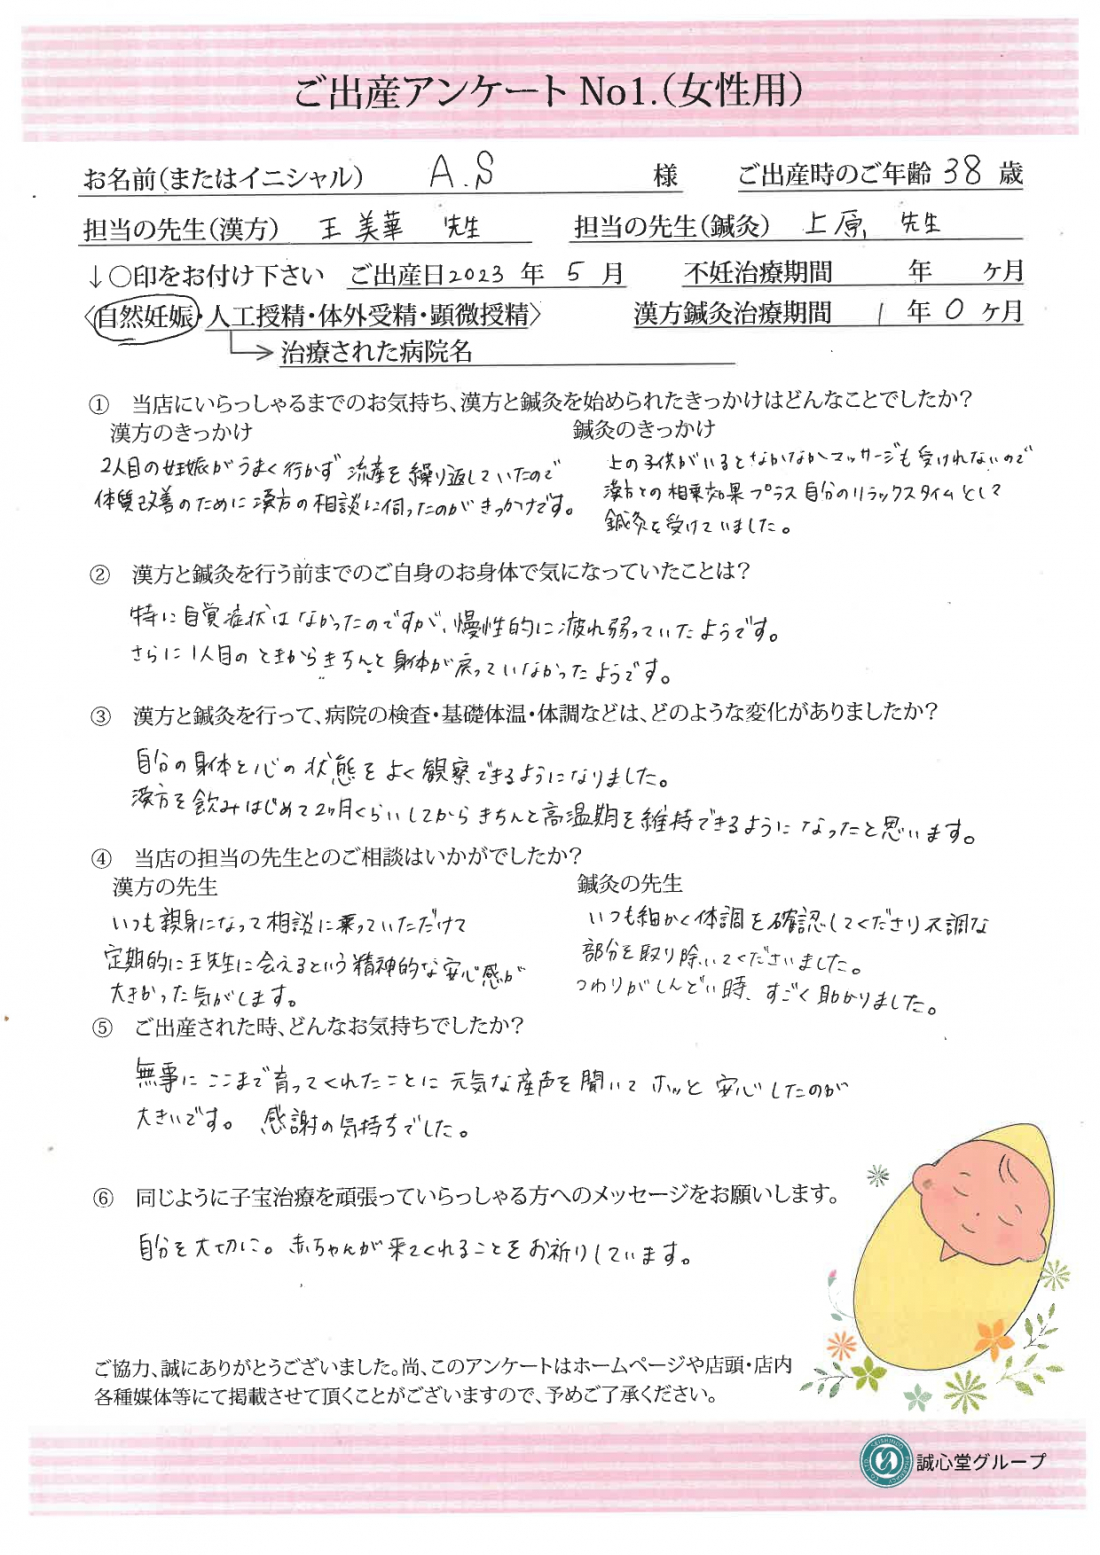 ご出産アンケート No1.(女性用)
お名前(またはイニシャル) A.S 様 ご出産時のご年齢 38 歳
担当の先生(漢方) 王 美華 先生 担当の先生(鍼灸) 上原 先生
↓○印をお付け下さい ご出産日2023 年 5 月 不妊治療期間 年 ヶ月
〈自然妊娠・人工授精・体外受精・顕微授精〉 漢方鍼灸治療期間 1 年 0 ヶ月
治療された病院名
① 当店にいらっしゃるまでのお気持ち、漢方と鍼灸を始められたきっかけはどんなことでしたか?
漢方のきっかけ
2人目の妊娠がうまく行かず 流産を繰り返していたので
体質改善のために漢方の相談に伺ったのがきっかけです。
鍼灸のきっかけ
上の子供がいるとなかなかマッサージも受けれないので
漢方との相乗効果プラス自分のリラックスタイムとして
鍼灸を受けていました。
② 漢方と鍼灸を行う前までのご自身のお身体で気になっていたことは?
特に自覚症状はなかったのですが、慢性的に疲れ弱っていたようです。
さらに1人目のときからきちんと身体が戻っていなかったようです。
③ 漢方と鍼灸を行って、病院の検査・基礎体温・体調などは、どのような変化がありましたか?
自分の身体と心の状態をよく観察できるようになりました。
漢方を飲みはじめて2ヶ月くらいしてからきちんと高温期を維持できるようになったと思います。
④ 当店の担当の先生とのご相談はいかがでしたか?
漢方の先生
いつも親身になって相談に乗っていただけて
定期的に王先生に会えるという精神的な安心感が
大きかった気がします。
鍼灸の先生
いつも細かく体調を確認してくださり不調な
部分を取り除いてくださいました。
つわりがしんどい時、すごく助かりました。
⑤ ご出産された時、どんなお気持ちでしたか?
無事にここまで育ってくれたことに元気な産声を聞いてホッと安心したのが
大きいです。 感謝の気持ちでした。
⑥ 同じように子宝治療を頑張っていらっしゃる方へのメッセージをお願いします。
自分を大切に。赤ちゃんが来てくれることをお祈りしています。
ご協力、誠にありがとうございました。尚、このアンケートはホームページや店頭・店内
各種媒体等にて掲載させて頂くことがございますので、予めご了承ください。
誠心堂グループ